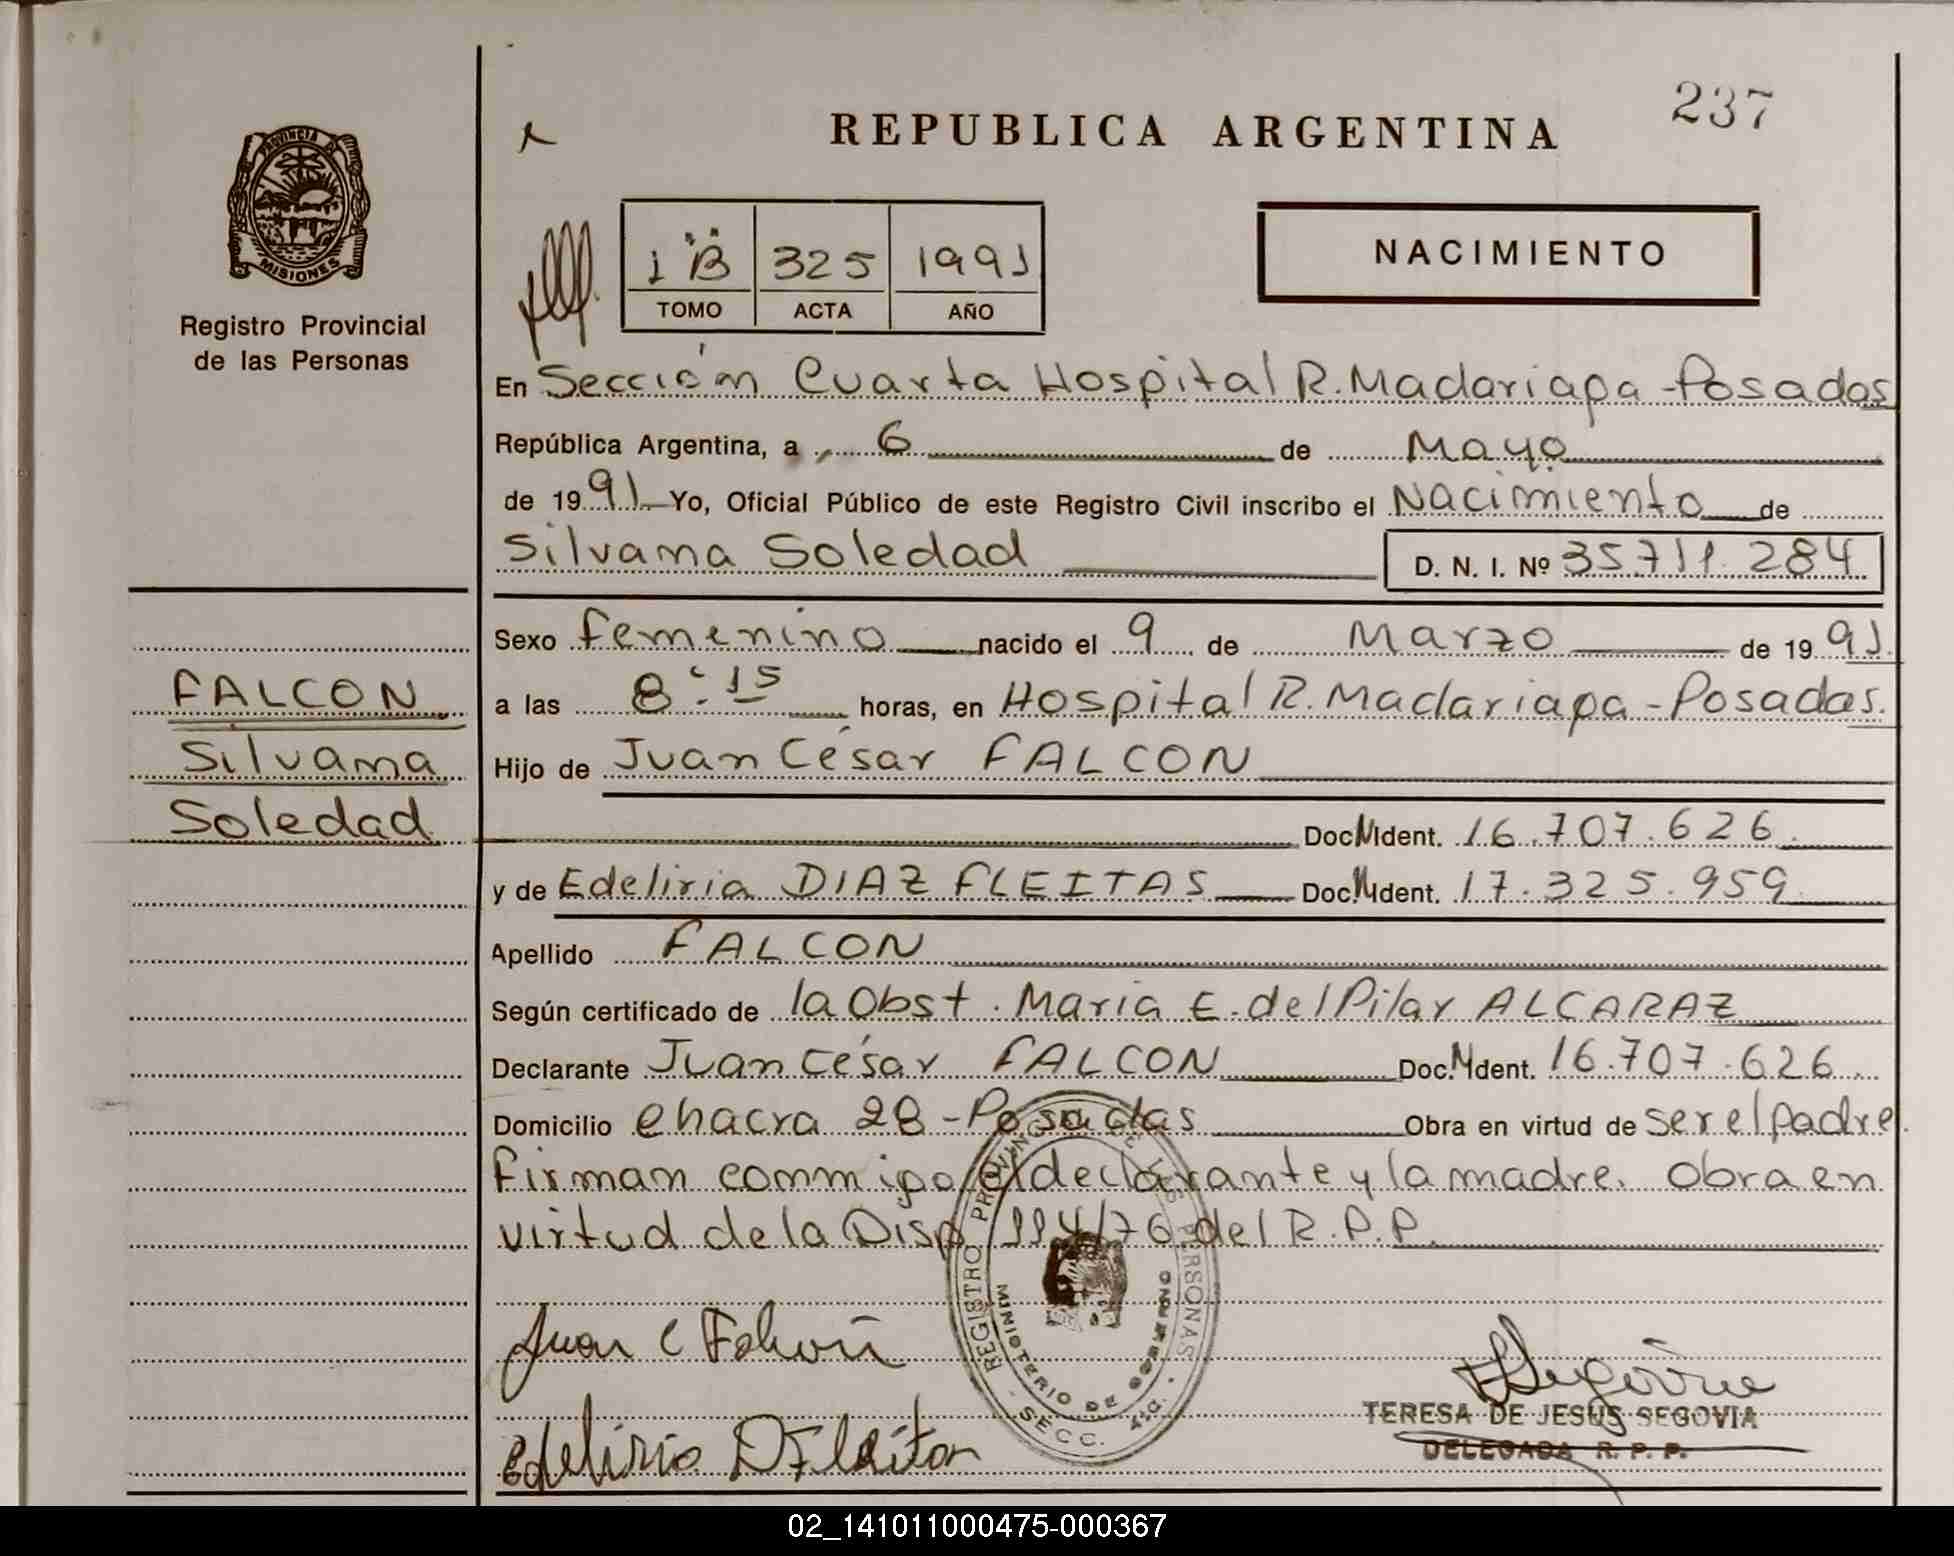 237
REPUBLICA ARGENTINA
PROVINCIA DE
MISIONES
Registro Provincial
de las Personas
1 "B" 325 1991
TOMO ACTA AÑO
NACIMIENTO
En Sección Cuarta Hospital R. Madariaga - Posadas
República Argentina, a 6 de Mayo
de 1991 Yo, Oficial Público de este Registro Civil inscribo el Nacimiento de
Silvana Soledad D. N. I. Nº 35.711.284
Sexo femenino nacido el 9 de Marzo de 1991
a las 8:15 horas, en Hospital R. Madariaga - Posadas.
Hijo de Juan César FALCON
Doc. Ident. 16.707.626
y de Edeliria DIAZ FLEITAS Doc. Ident. 17.325.959
Apellido FALCON
Según certificado de la Obst. Maria E. del Pilar ALCARAZ
Declarante Juan César FALCON Doc. Ident. 16.707.626
Domicilio chacra 28 - Posadas Obra en virtud de ser el padre.
Firman conmigo el declarante y la madre. Obra en
virtud de la Disp. 114/76 del R.P.P.
FALCON
Silvana
Soledad
REGISTRO PROVINCIAL DE LAS PERSONAS
MINISTERIO DE GOBIERNO
SECC. 4ta.
Juan C Falcón
Edeliria D Fleitas
TERESA DE JESUS SEGOVIA
DELEGADA R. P. P.
02_141011000475-000367